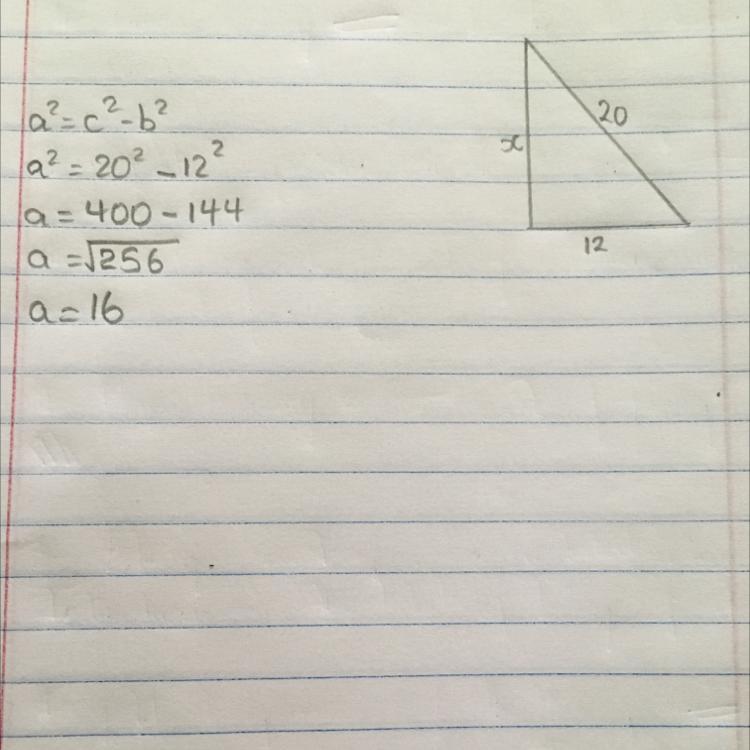 a² = c² - b²
a² = 20² - 12²
a = 400 - 144
a = √256
a = 16
20
x
12